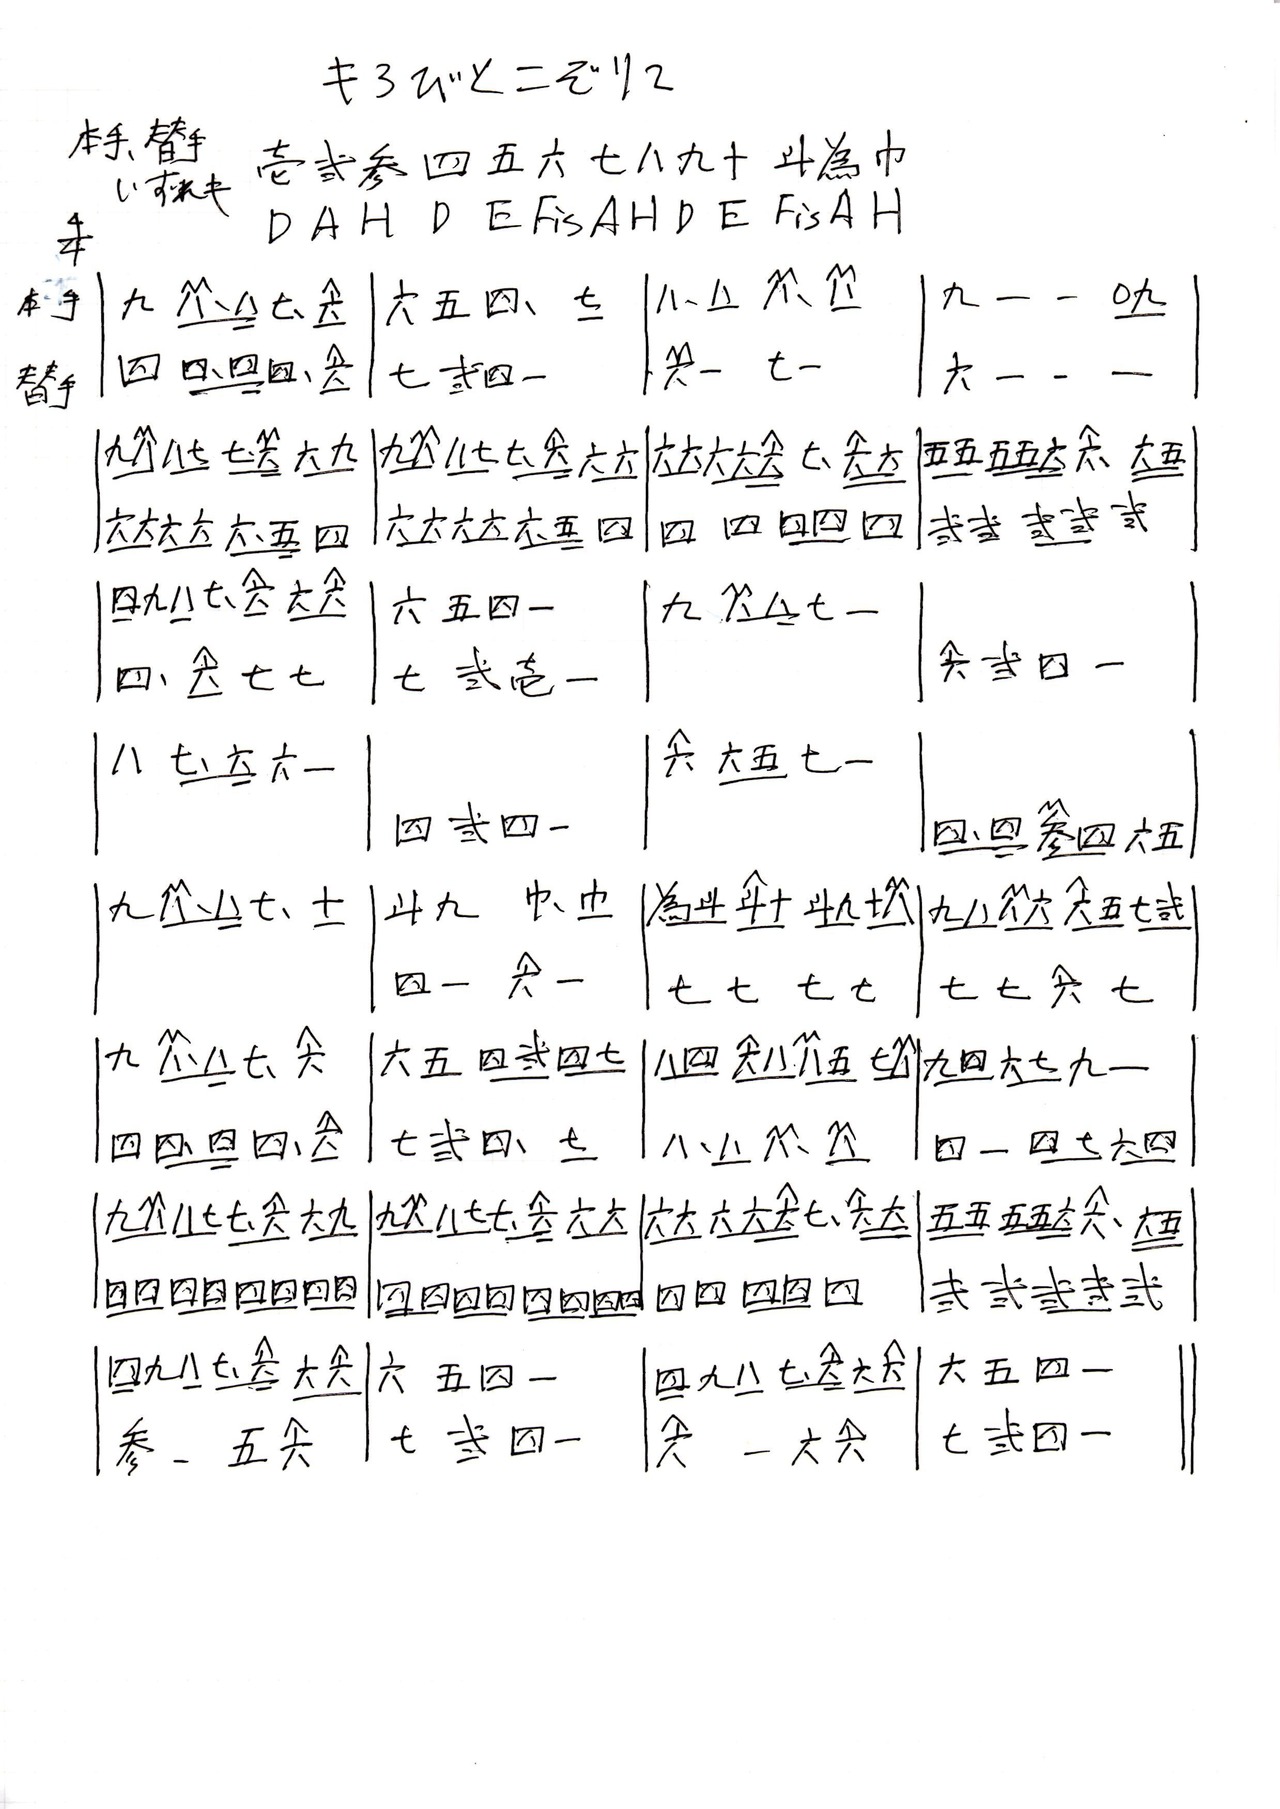 もろびとこぞりて
本手、替手
いずれも
壱弐参四五六七八九十斗為巾
D A H D E Fis A H D E Fis A H
4/4
本手 | 九 八、八七、六 | 六五四、七 | 八、八 八、八 | 九 ー ー 〇九 |
替手 | 四 四、四四、六 | 七弐四ー | 六ー 七ー | 六 ー ー ー |
| 九八八七七、六六九 | 九八八七七、六六六 | 六六六六六七、六六 | 五五五五六六、六五 |
| 六六六六六、五四 | 六六六六六、五四 | 四 四 四四四 | 弐弐弐弐弐 |
| 四九八七、六六六 | 六五四ー | 九八八七ー | |
| 四、六七七 | 七弐壱ー | | 六弐四ー |
| 八七、六六ー | | 六六五七ー | |
| | 四弐四ー | | 四、四参四六五 |
| 九八、八七、十 | 斗九巾、巾 | 為斗斗十斗九十八 | 九八八六六五七弐 |
| | 四ー六ー | 七七七七 | 七七六七 |
| 九八、八七、六 | 六五四弐四七 | 八四六八八五七八 | 九四六七九ー |
| 四四、四四、六 | 七弐四、七 | 八、八八、八 | 四ー四七六四 |
| 九八八七七、六六九 | 九八八七七、六六六 | 六六六六六七、六六 | 五五五五六六、六五 |
| 四四四四四四四四 | 四四四四四四四四 | 四四四四四 | 弐弐弐弐弐 |
| 四九八七、六六六 | 六五四ー | 四九八七、六六六 | 六五四ー ||
| 参ー五六 | 七弐四ー | 六ー六六 | 七弐四ー ||